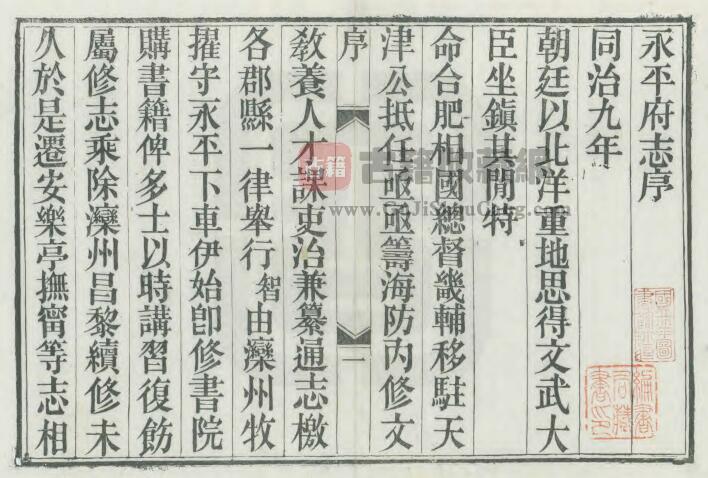 永平府志序
同治九年
朝廷以北洋重地思得文武大
臣坐鎮其間特
命合肥相國總督畿輔移駐天
津公抵任亟亟籌海防內修文
序
一
教養人才課吏治兼纂通志檄
各郡縣一律舉行智由灤州牧
擢守永平下車伊始卽修書院
購書籍俾多士以時講習復飭
屬修志乘除灤州昌黎續修未
久於是遷安樂亭撫甯等志相
古籍
www.GuJiShuCang.com